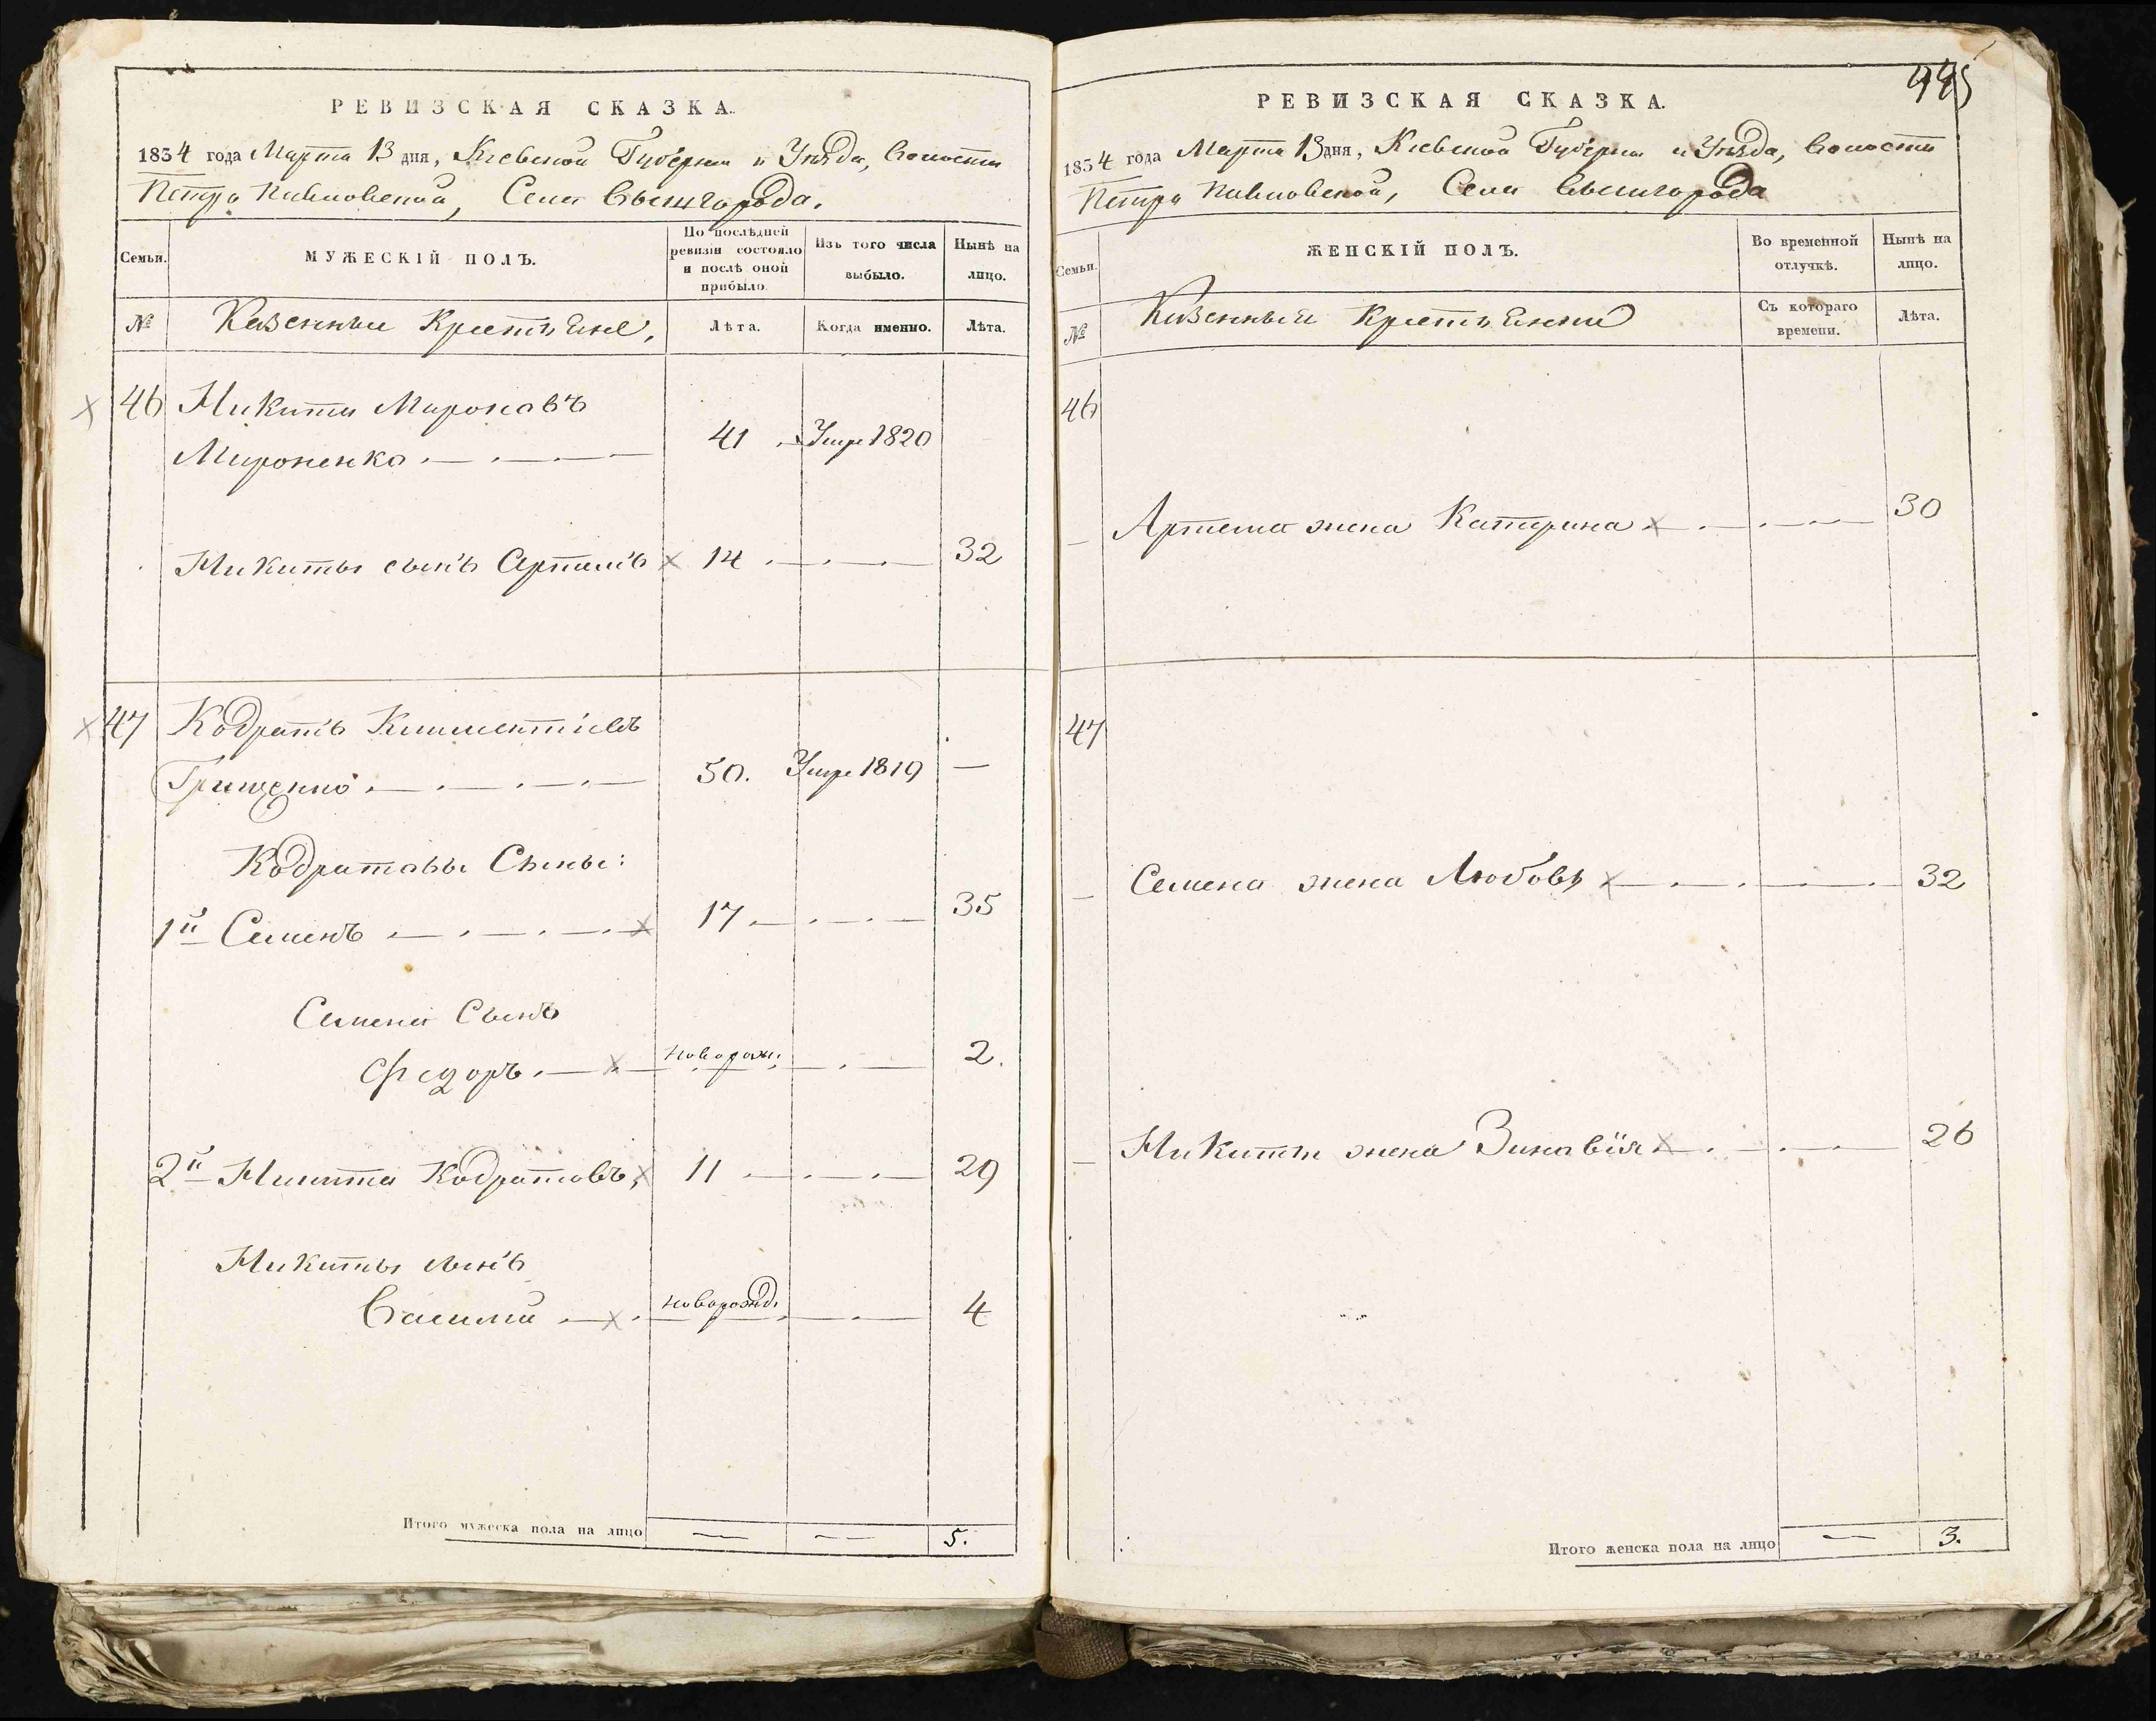 РЕВИЗСКАЯ СКАЗКА.
1834 года Марта 13 дня, Кіевской Губерніи и Уѣзда, Волости
Петро Павловской, Села Вышгорода.
Семьи.
МУЖЕСКІЙ ПОЛЪ.
По послѣдней ревизіи состояло и послѣ оной прибыло.
Изъ того числа выбыло.
Нынѣ на лицо.
№
Казенные Крестьяне,
Лѣта.
Когда именно.
Лѣта.
46 Никита Мироновъ
Мироненко 41 Умре 1820
Никиты сынъ Артемъ 14 32
47 Кодратъ Климентіевъ
Грищенко 50. Умре 1819 —
Кодратовы Сыны:
1й Семенъ 17 35
Семена Сынъ
Федоръ новорож. 2.
2й Никита Кодратовъ, 11 29
Никиты сынъ
Василий новорожд. 4
Итого мужеска пола на лицо — — 5.
445
РЕВИЗСКАЯ СКАЗКА.
1834 года Марта 13 дня, Кіевской Губерніи и Уѣзда, Волости
Петро Павловской, Села Вышгорода
Семьи.
ЖЕНСКІЙ ПОЛЪ.
Во временной отлучкѣ.
Нынѣ на лицо.
№
Казенныя Крестьянки
Съ котораго времени.
Лѣта.
46
Артема жена Катерина 30
47
Семена жена Любовь 32
Никиты жена Зиновія 26
Итого женска пола на лицо — 3.